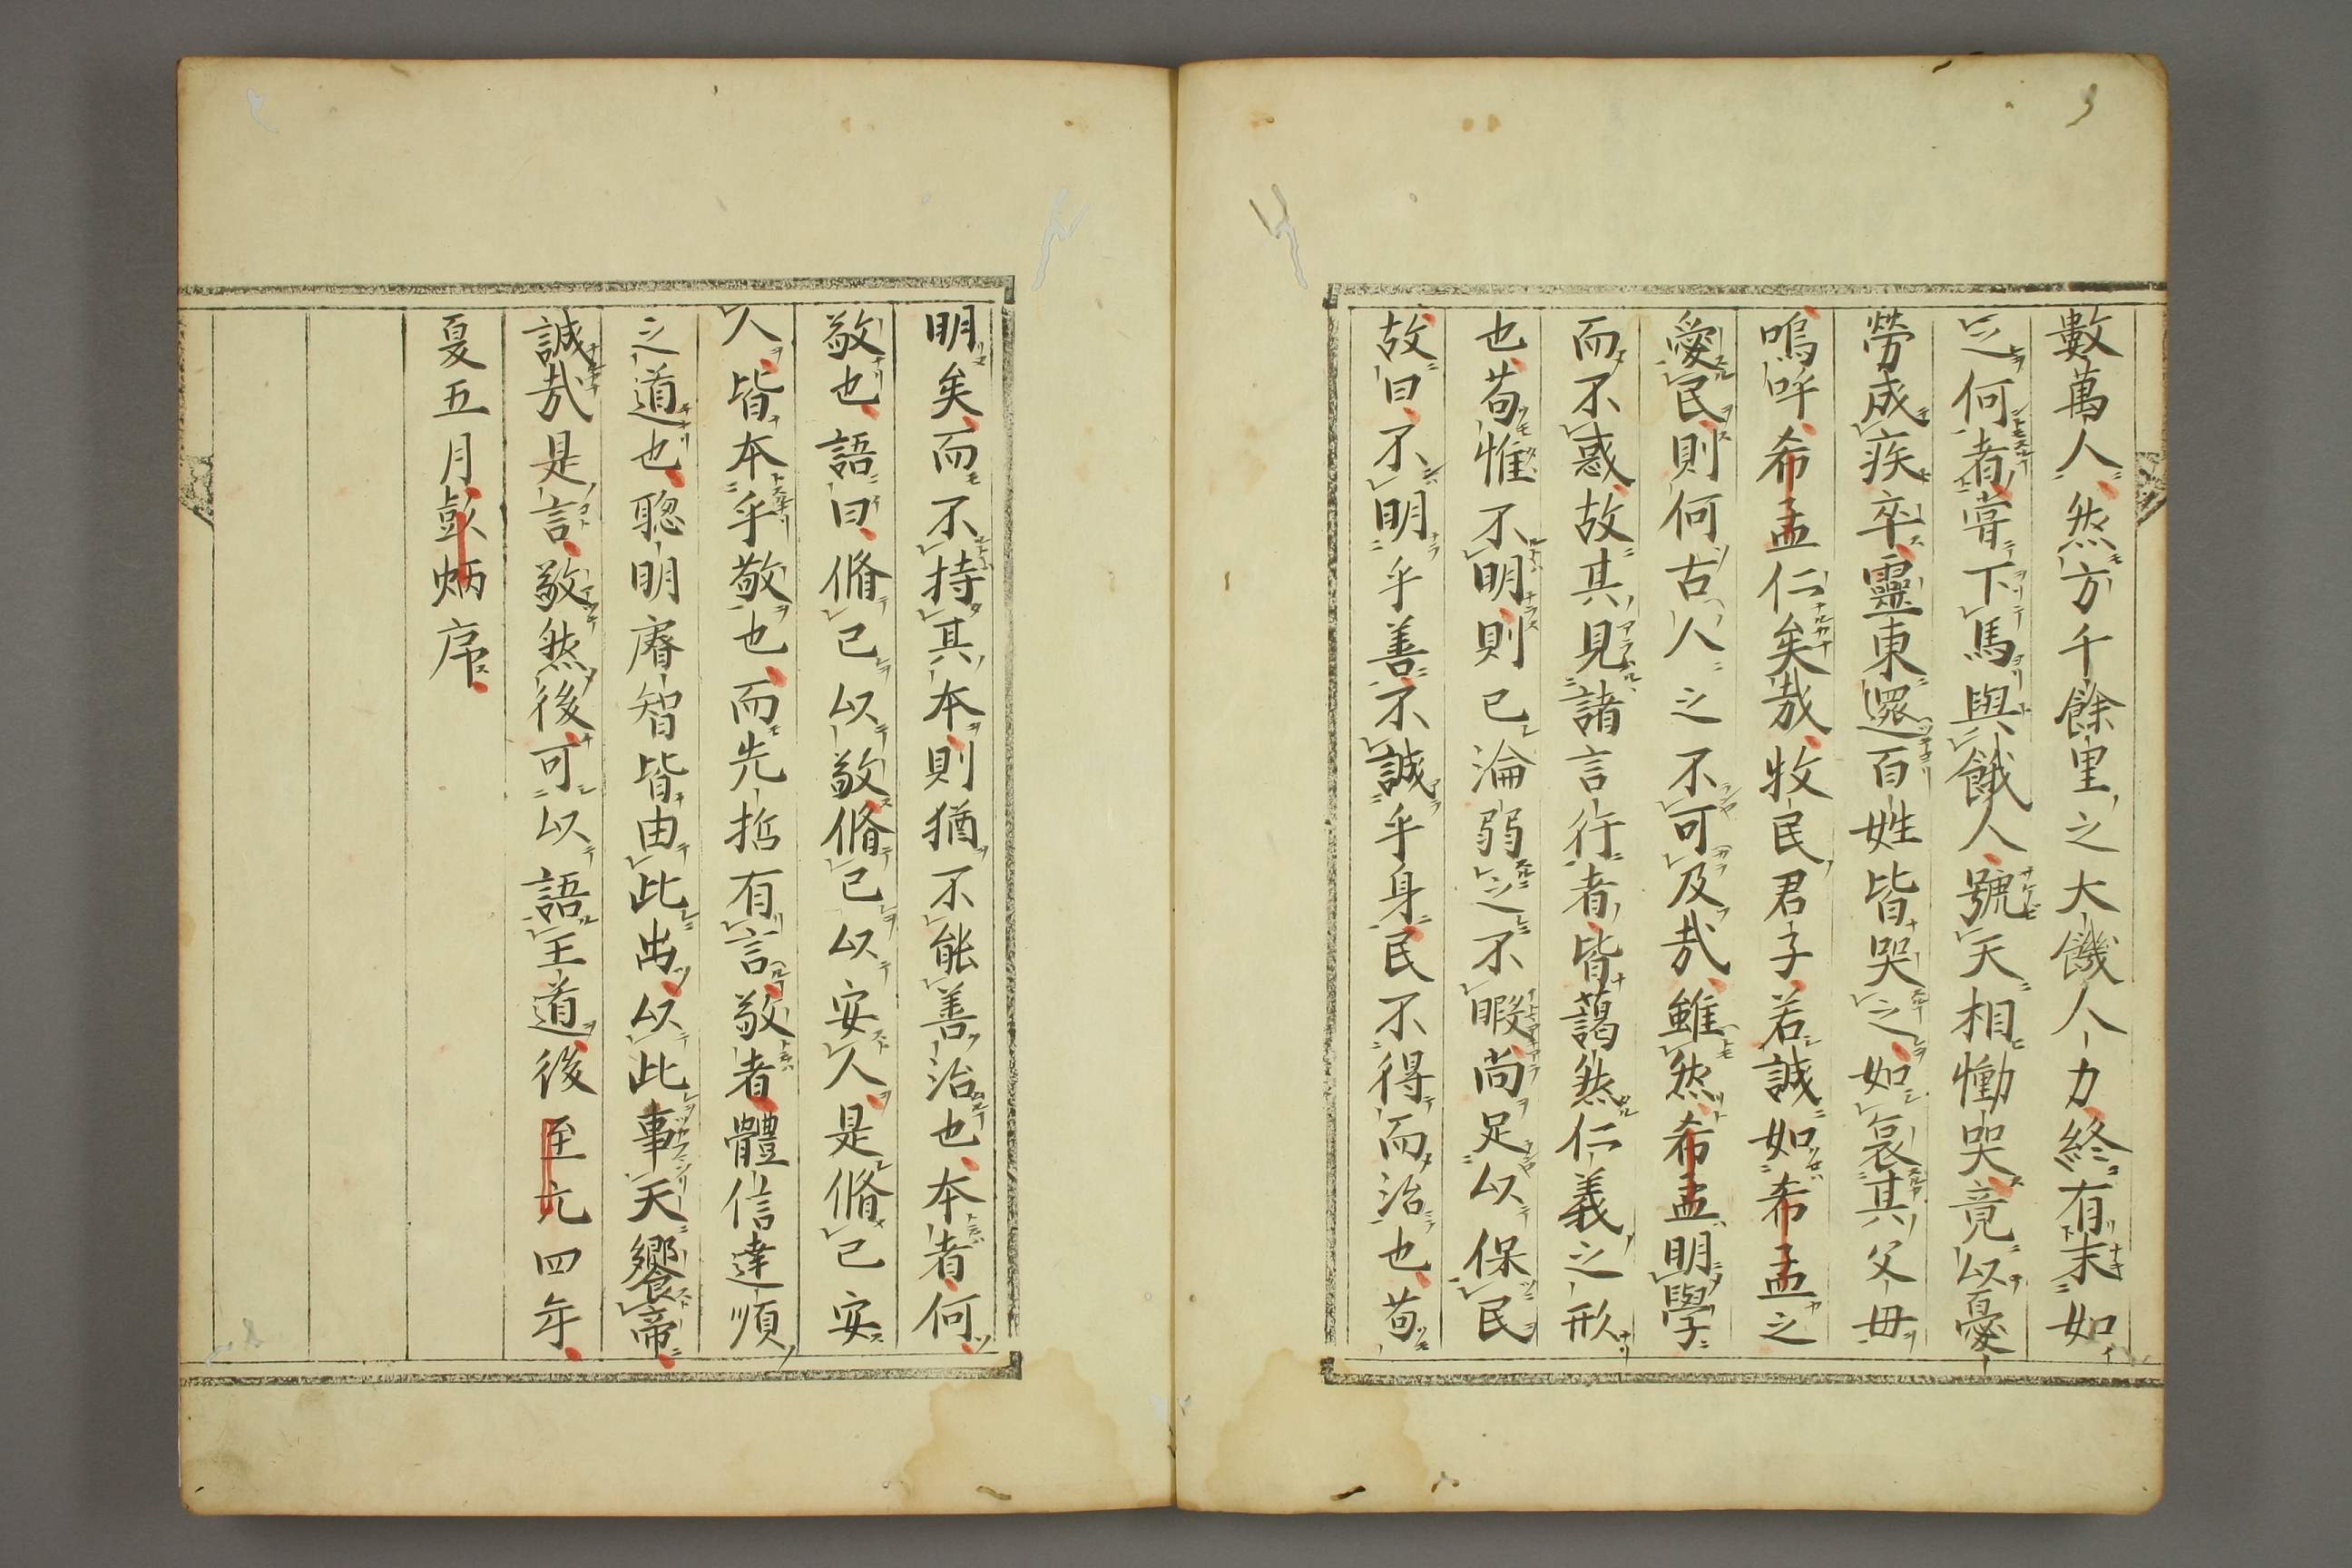 數萬人然方千餘里之大饑人人力終有末如
之何者嘗下馬與餓人號天相慟哭竟以憂
勞成疾卒靈東還百姓皆哭之如哀其父毋
嗚呼希孟仁矣哉牧民君子若誠如希孟之
愛民則何古人之不可及哉雖然希孟明學
而不惑故其見諸言行者皆藹然仁義之形
也苟惟不明則已淪弱之不暇尚足以保民
故曰不明乎善不誠乎身民不得而治也苟
明矣而不持其本則猶不能善治也本者何
敬也語曰脩已以敬脩已以安人是脩已安
人皆本乎敬也而先哲有言敬者體信達順
之道也聰明睿智皆由此出以此事天饗帝
誠哉是言敬然後可以語王道後至元四年
夏五月彭炳序